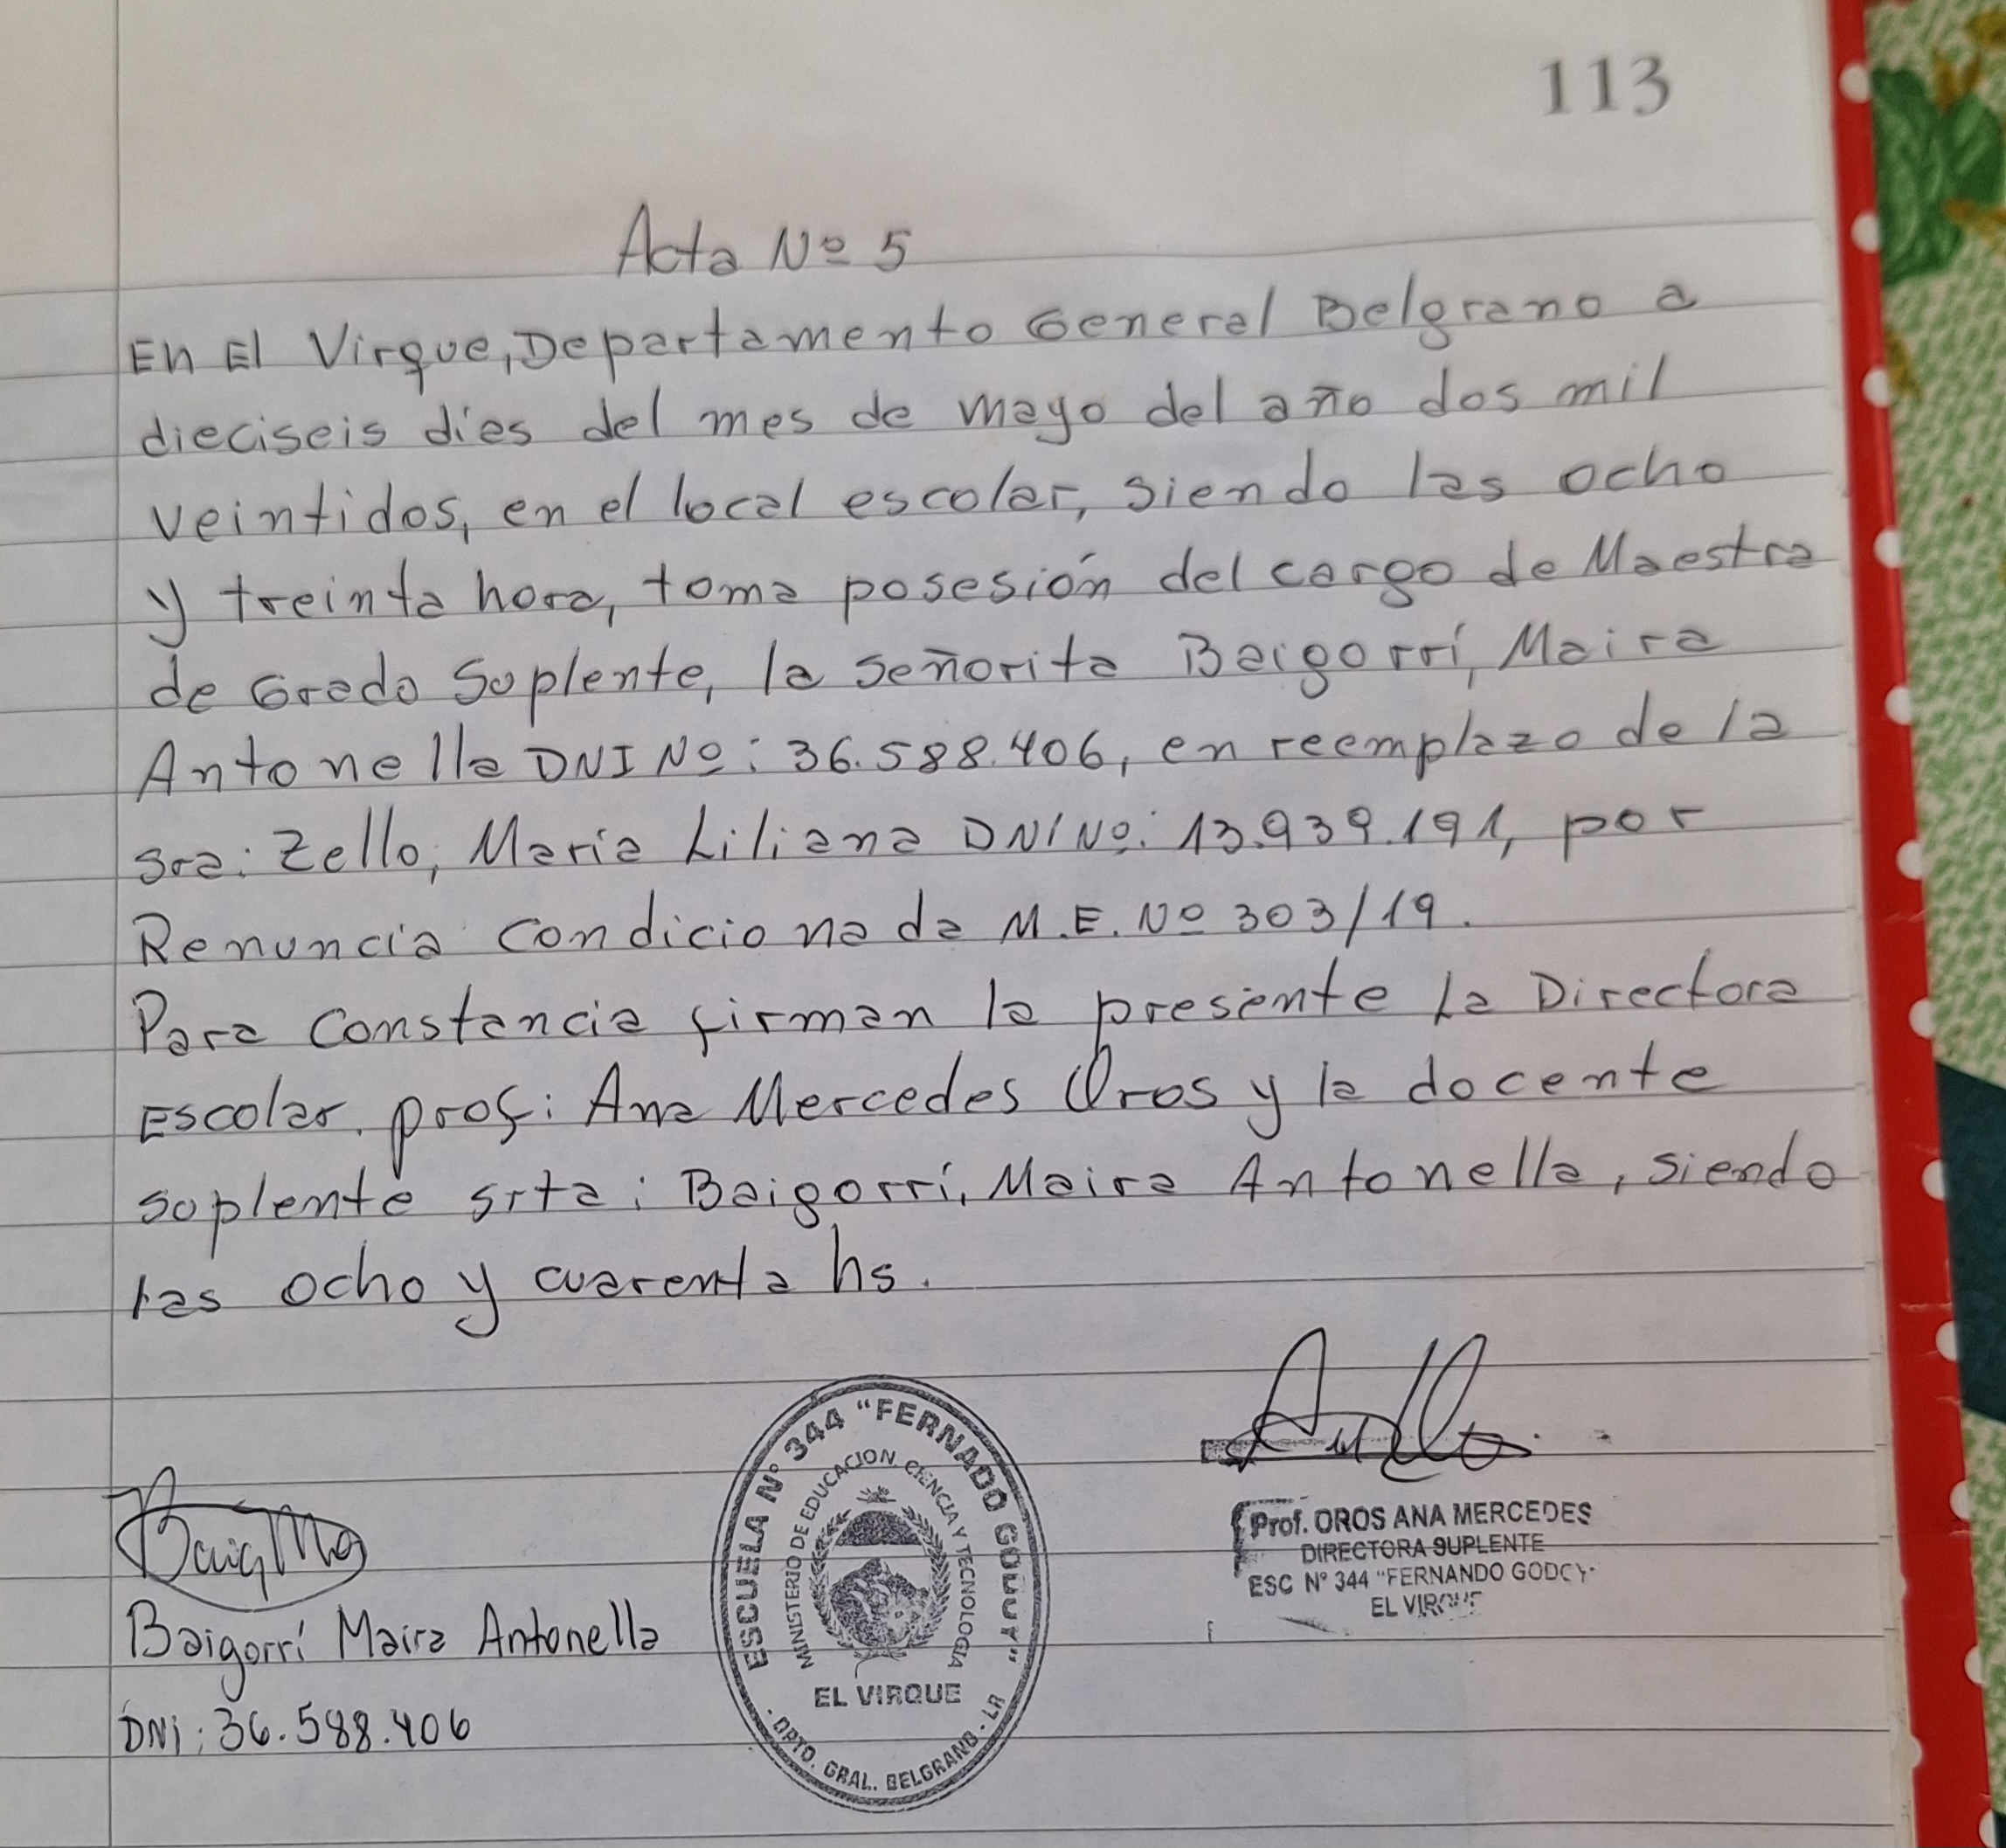 113
Acta Nº 5
En El Virque, Departamento General Belgrano a
dieciseis dias del mes de mayo del año dos mil
veintidos, en el local escolar, siendo las ocho
y treinta hora, toma posesión del cargo de Maestra
de Grado Suplente, la señorita Baigorrí, Maira
Antonella DNI Nº: 36.588.406, en reemplazo de la
sra: Zello, Maria Liliana DNI Nº: 13.939.191, por
Renuncia condicionada M.E. Nº 303/19.
Para Constancia firman la presente La Directora
Escolar. prof: Ana Mercedes Oros y la docente
suplente srta: Baigorrí, Maira Antonella, siendo
las ocho y cuarenta hs.
Baigorrí Maira Antonella
DNI: 36.588.406
ESCUELA Nº 344 "FERNADO GODOY"
MINISTERIO DE EDUCACION, CIENCIA Y TECNOLOGIA
EL VIRQUE
- DPTO. GRAL. BELGRANO - LR
Prof. OROS ANA MERCEDES
DIRECTORA SUPLENTE
ESC Nº 344 "FERNANDO GODOY"
EL VIRQUE